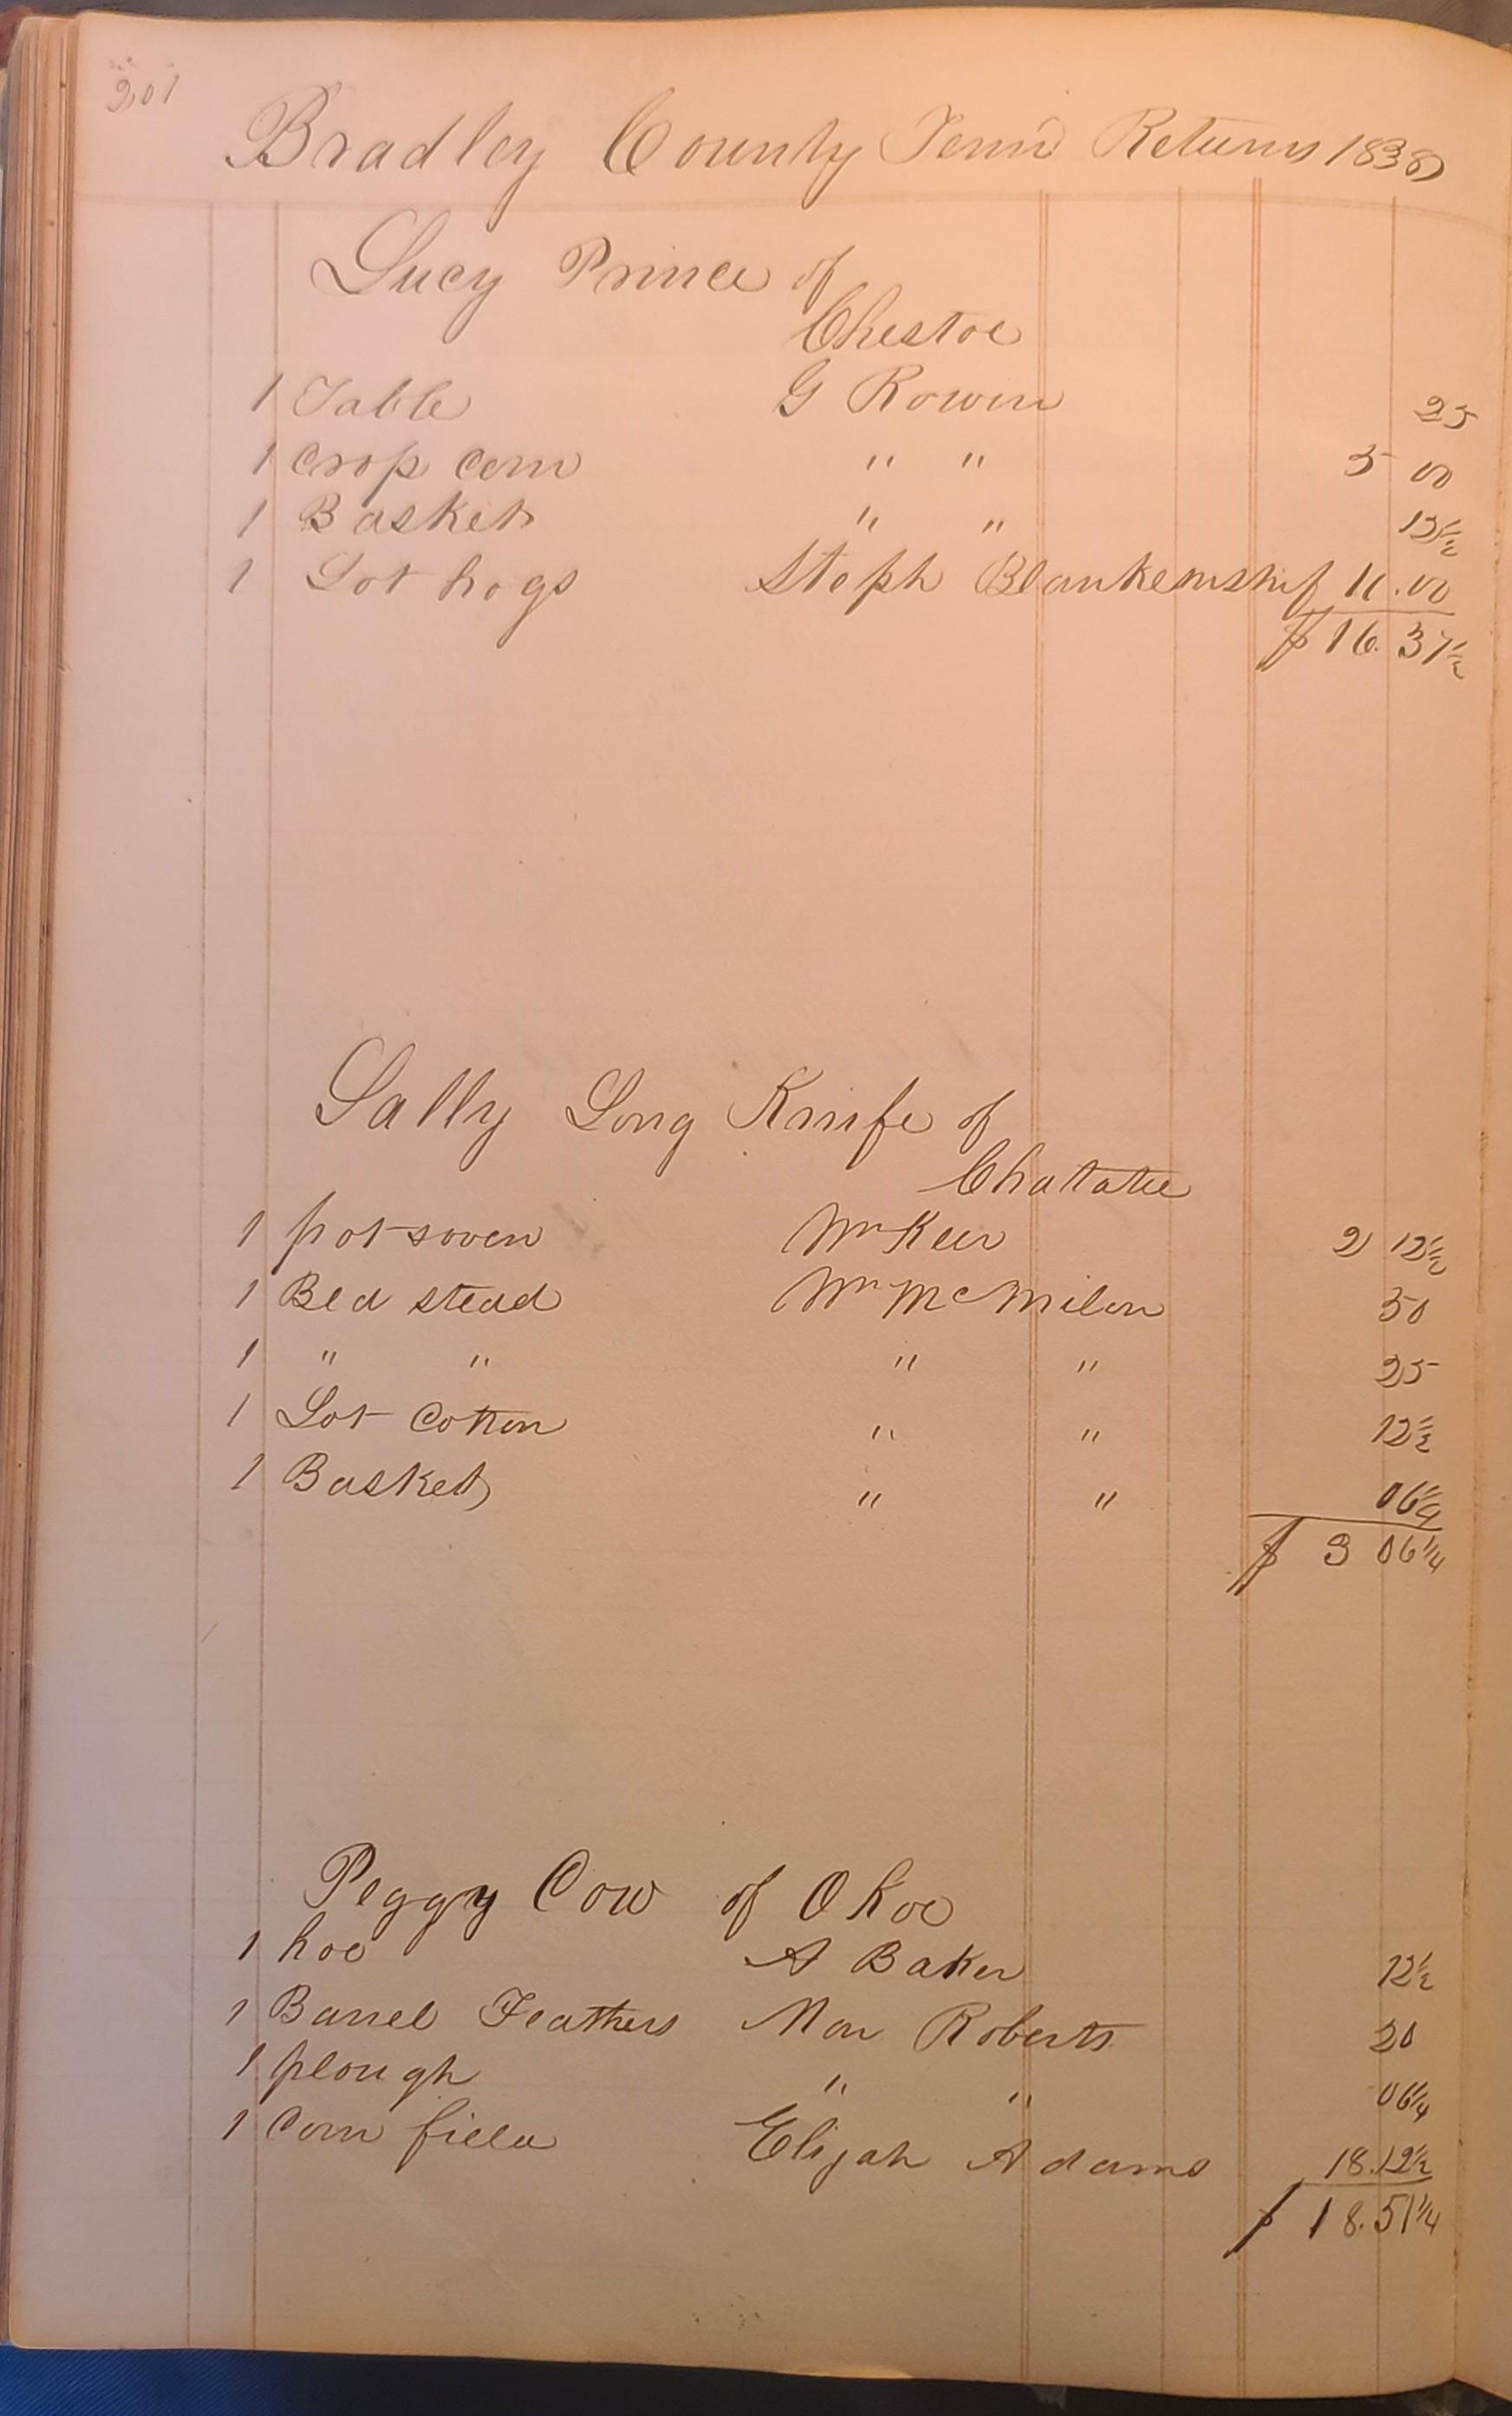 201
Bradley County Tenn Returns 1838
Lucy Prince of
Chestoe
1 Table G Rowin 25
1 Crop Corn " " 5 00
1 Basket " " 12½
1 Lot hogs Steph Blankenship 11.00
$16.37½
Sally Long Knife of
Chatate
1 pot & oven Wm Keer 2 12½
1 Bed stead Wm McMilon 50
1 " " " " 25
1 Lot Cotton " " 12½
1 Basket " " 06¼
$ 3 06¼
Peggy Cow of Okoe
1 hoe A Baker 12½
1 Barrel Feathers Roberts 20
1 plough " " 06¼
1 Corn field Elijah Adams 18.12½
$ 18.51¼